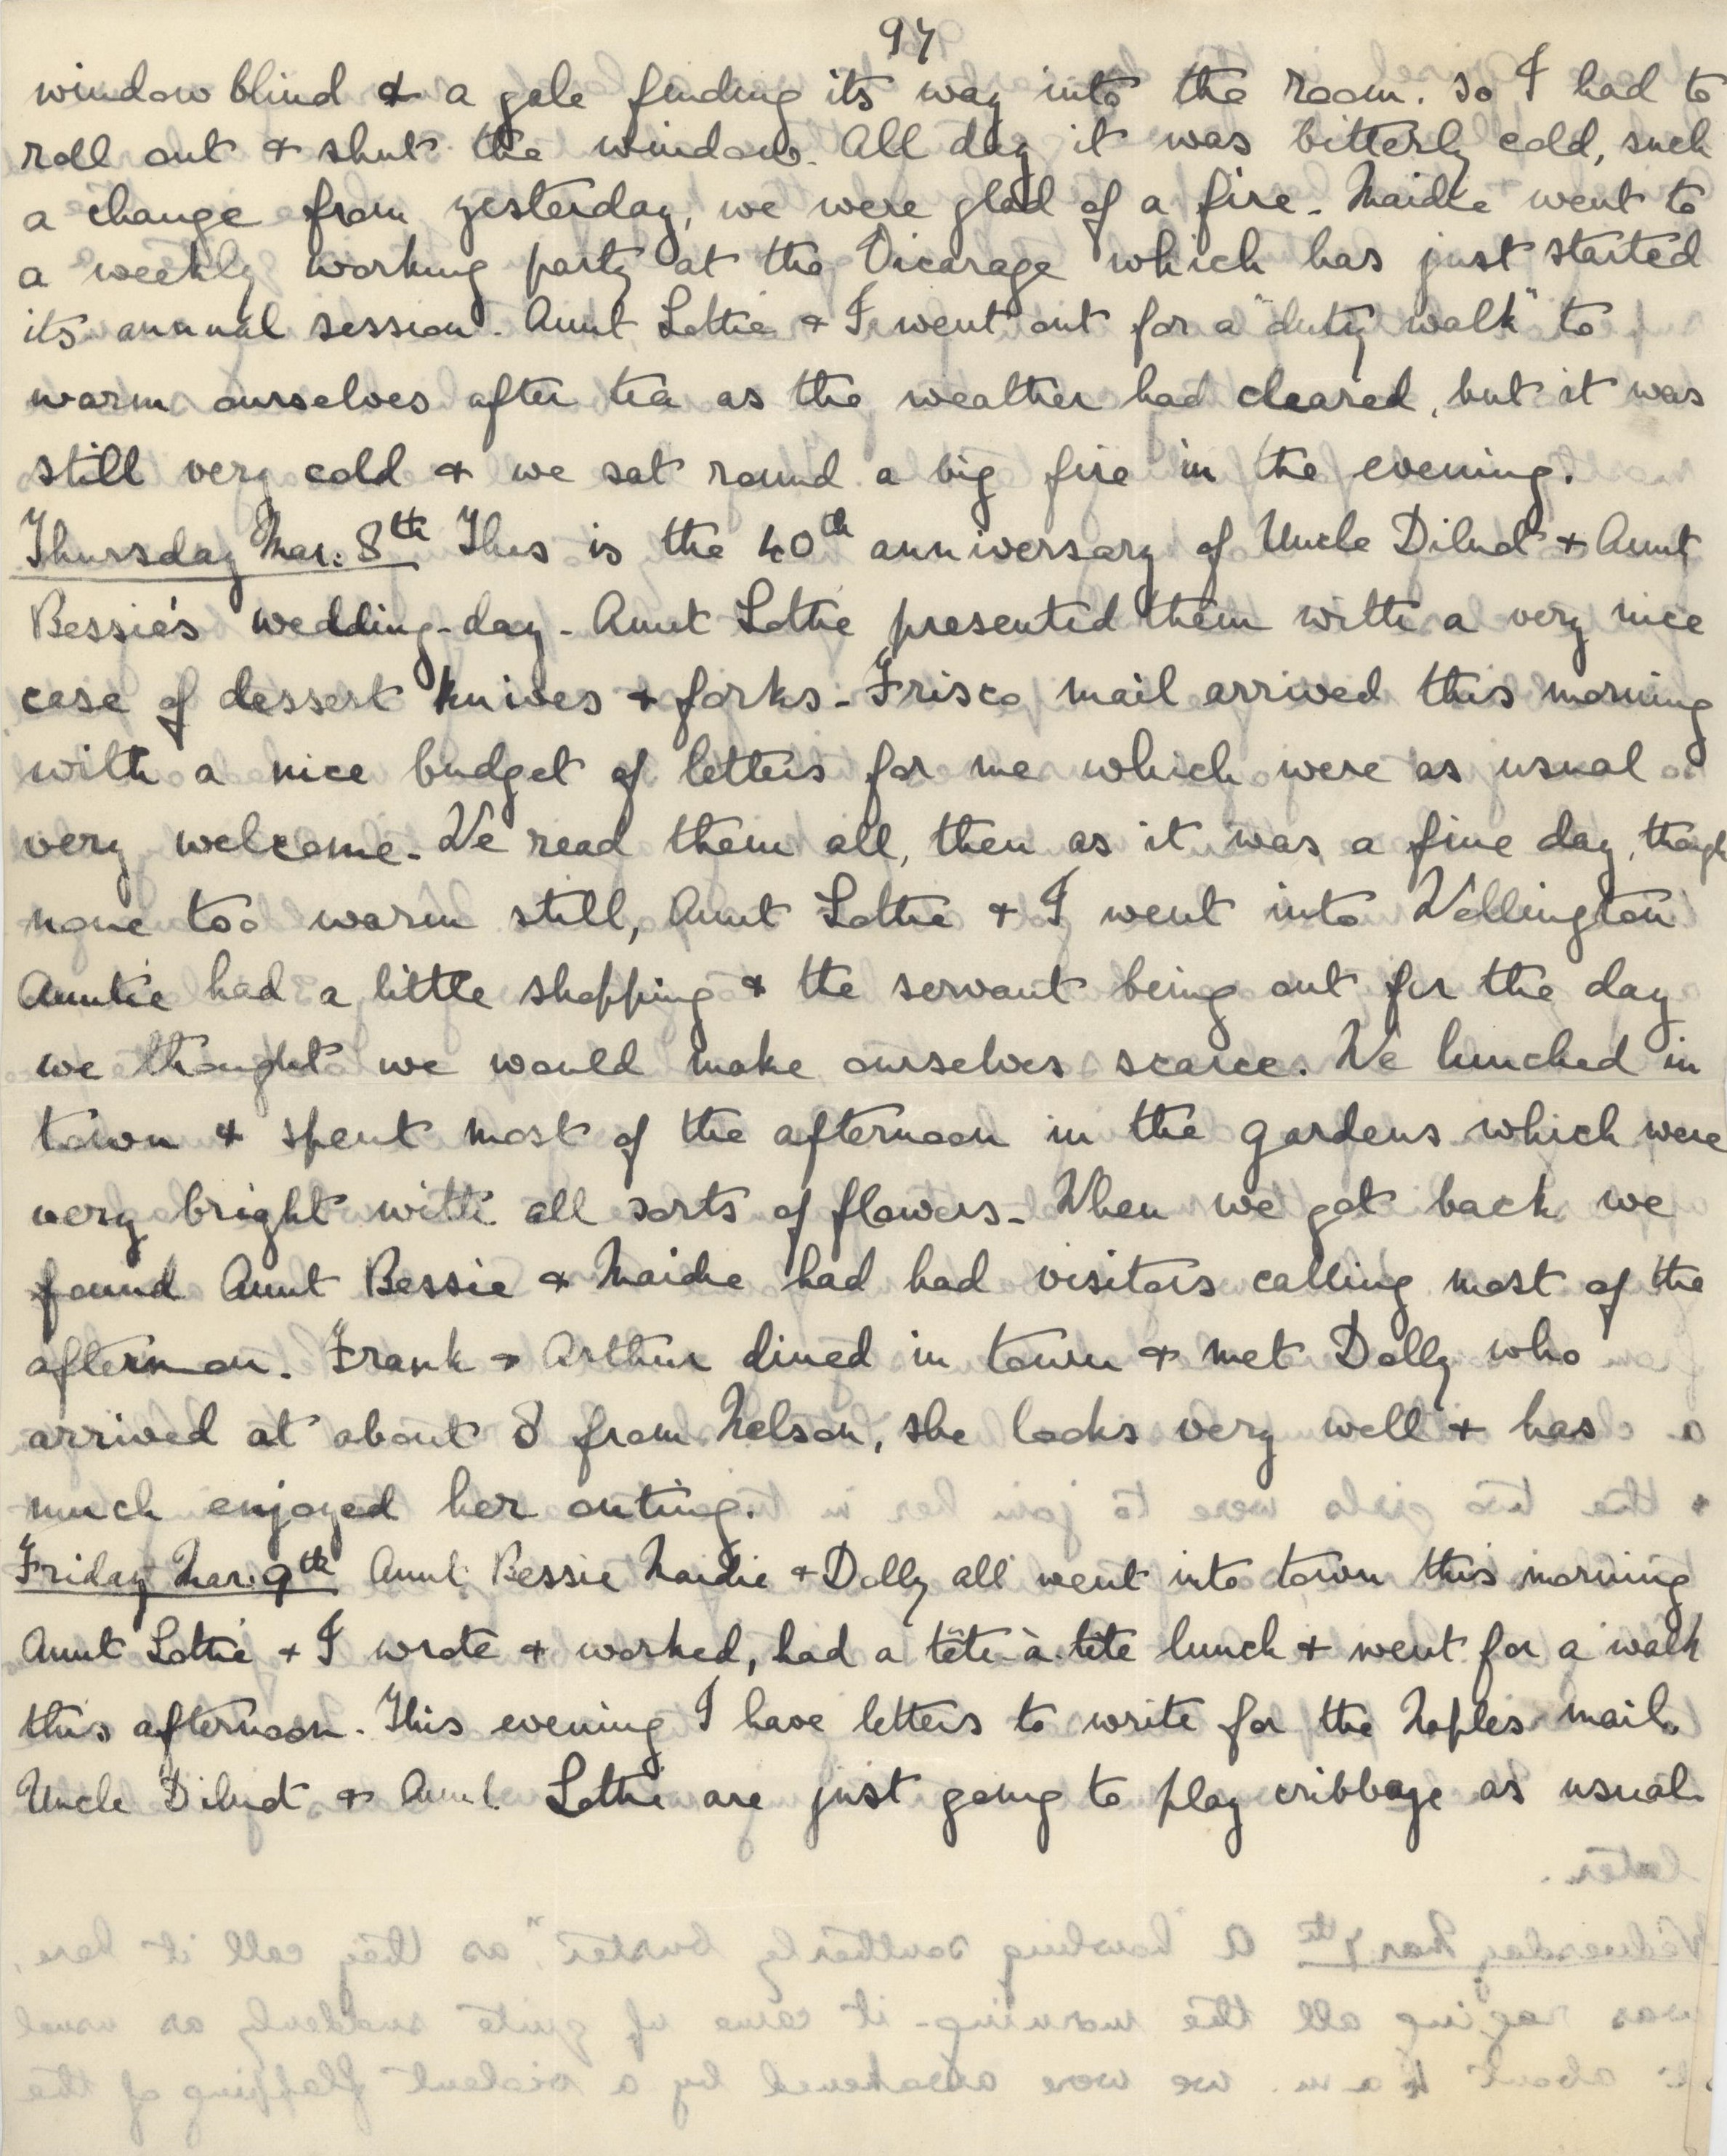 97
window blind & a gale finding its way into the room. So I had to
roll out & shut the window. All day it was bitterly cold, such
a change from yesterday, we were glad of a fire - Maidie went to
a weekly working party at the Vicarage which has just started
its annual session. Aunt Lottie & I went out for a "duty walk" to
warm ourselves after tea as the weather had cleared, but it was
still very cold & we sat round a big fire in the evening.
Thursday Mar: 8th This is the 40th anniversary of Uncle Dilnot & Aunt
Bessie's wedding-day - Aunt Lottie presented them with a very nice
case of dessert knives & forks - Frisco mail arrived this morning
with a nice budget of letters for me which were as usual
very welcome - We read them all, then as it was a fine day, though
none too warm still, Aunt Lottie & I went into Wellington
Auntie had a little shopping & the servant being out for the day
we thought we would make ourselves scarce. We lunched in
town & spent most of the afternoon in the gardens which were
very bright with all sorts of flowers - When we got back we
found Aunt Bessie & Maidie had had visitors calling most of the
afternoon. Frank & Arthur dined in town & met Dolly who
arrived at about 8 from Nelson, she looks very well & has
much enjoyed her outing.
Friday Mar: 9th Aunt Bessie Maidie & Dolly all went into town this morning
Aunt Lottie & I wrote & worked, had a tête-à-tête lunch & went for a walk
this afternoon. This evening I have letters to write for the Naples mail.
Uncle Dilnot & Aunt Lottie are just going to play cribbage as usual.